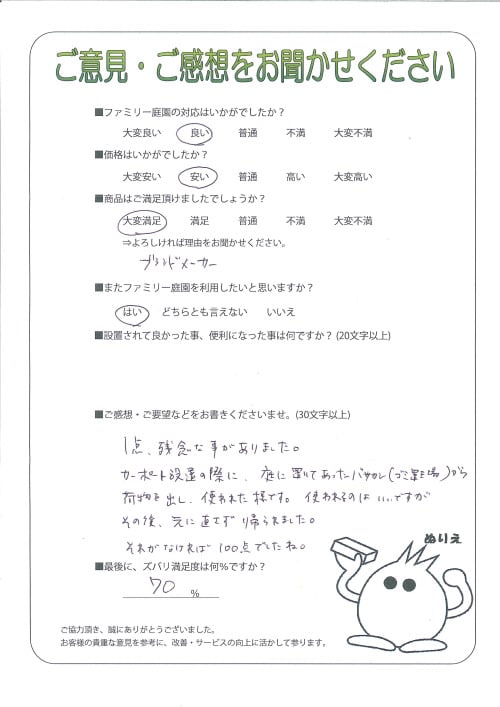 ご意見・ご感想をお聞かせください
■ファミリー庭園の対応はいかがでしたか？
大変良い 良い 普通 不満 大変不満
■価格はいかがでしたか？
大変安い 安い 普通 高い 大変高い
■商品はご満足頂けましたでしょうか？
大変満足 満足 普通 不満 大変不満
⇒よろしければ理由をお聞かせください。
ブランドメーカー
■またファミリー庭園を利用したいと思いますか？
はい どちらとも言えない いいえ
■設置されて良かった事、便利になった事は何ですか？(20文字以上)
■ご感想・ご要望などをお書きくださいませ。(30文字以上)
1点、残念な事がありました。
カーポート設置の際に、庭に置いてあった(ゴミ置き場)から
荷物を出し、使われた様です。使われるのはいいですが
その後、元に直さず帰られました。
それがなければ100点でしたね。
ぬりえ
■最後に、ズバリ満足度は何%ですか？
70 %
ご協力頂き、誠にありがとうございました。
お客様の貴重な意見を参考に、改善・サービスの向上に活かして参ります。